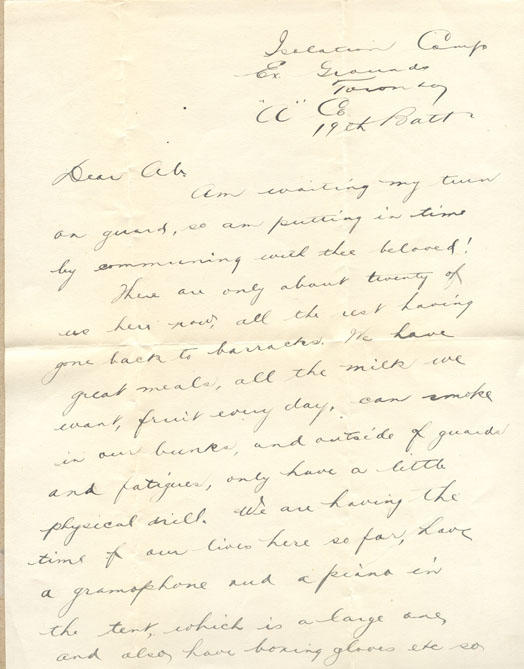 Isolation Camp
Ex. Grounds
Toronto
"C" Co
19th Batt
Dear Ab,
Am waiting my turn
on guard, so am putting in time
by communing with thee beloved!
There are only about twenty of
us here now, all the rest having
gone back to barracks. We have
great meals, all the milk we
want, fruit every day, can smoke
in our bunks, and outside of guards
and fatigues, only have a little
physical drill. We are having the
time of our lives here so far, have
a gramophone and a piano in
the tent, which is a large one,
and also have boxing gloves etc so